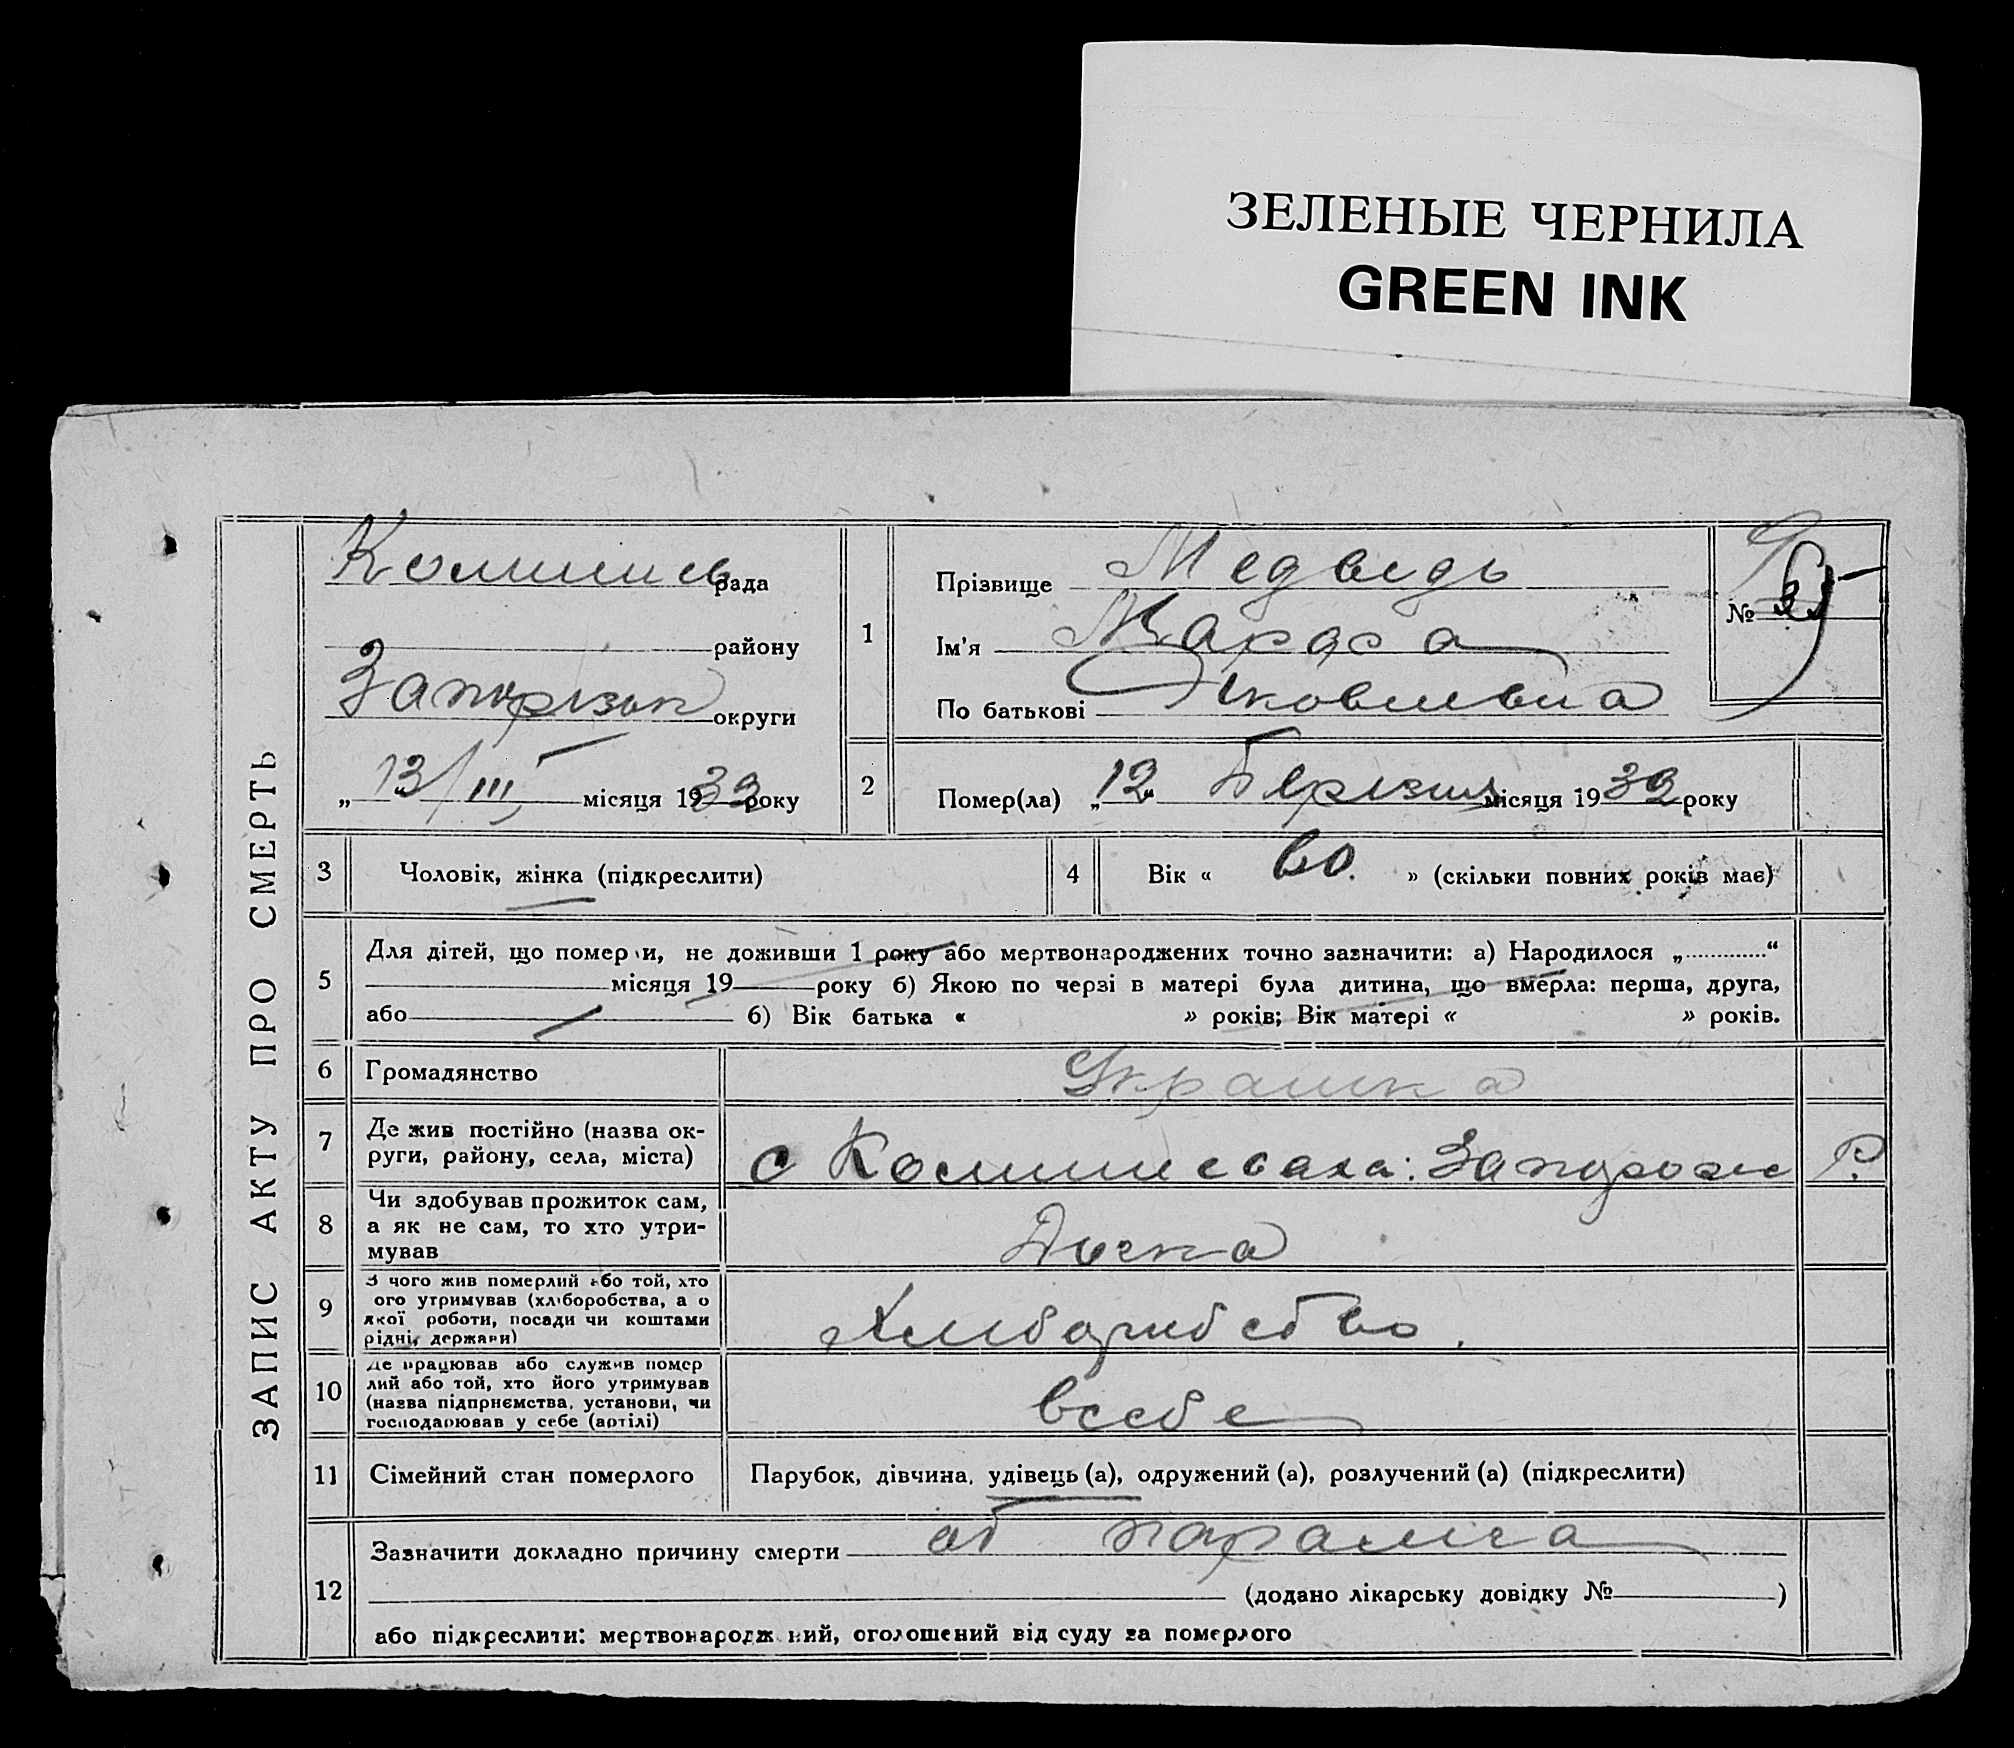 ЗЕЛЕНЫЕ ЧЕРНИЛА
GREEN INK
ЗАПИС АКТУ ПРО СМЕРТЬ
рада
району
Запорізьк округи
„13/III місяця 1933 року
1
Прізвище Медведь
Ім'я
По батькові Яковлевна
№
2
Помер(ла) „12" Березня місяця 1933 року
3 Чоловік, жінка (підкреслити)
4 Вік « 60. » (скільки повних років має)
5 Для дітей, що померли, не доживши 1 року або мертвонароджених точно зазначити: а) Народилося „ “
місяця 19 року б) Якою по черзі в матері була дитина, що вмерла: перша, друга,
або б) Вік батька « » років; Вік матері « » років.
6 Громадянство Украинка
7 Де жив постійно (назва ок-
руги, району, села, міста)
с Запорож Р.
8 Чи здобував прожиток сам,
а як не сам, то хто утри-
мував
Дочка
9 З чого жив померлий або той, хто
ого утримував (хліборобства, а о
якої роботи, посади чи коштами
рідні, держави)
Хлиборобство.
10 Де працював або служив помер
лий або той, хто його утримував
(назва підприємства, установи, чи
господарював у себе (артілі)
всебе
11 Сімейний стан померлого Парубок, дівчина, удівець (а), одружений (а), розлучений (а) (підкреслити)
12 Зазначити докладно причину смерти от паралича
(додано лікарську довідку № )
або підкреслити: мертвонароджений, оголошений від суду за померлого